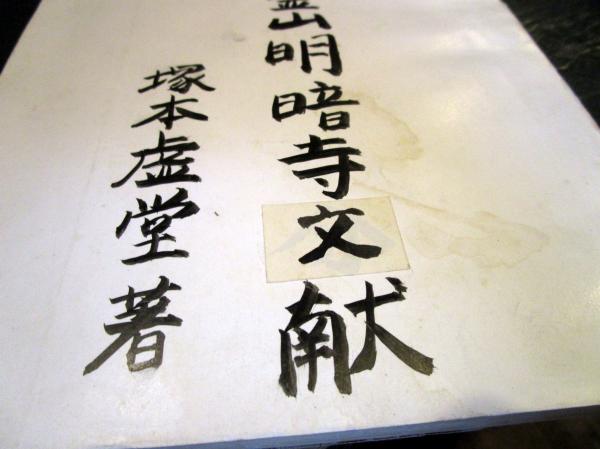 霊山明暗寺文献
塚本虚堂著